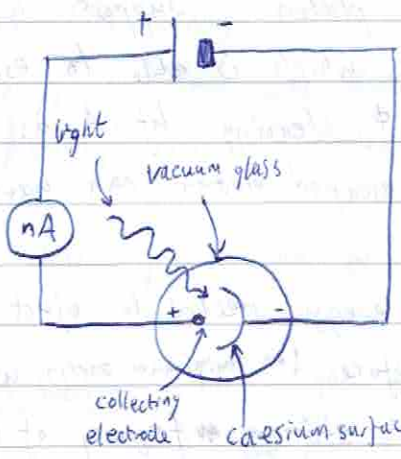 + -
light
vacuum glass
nA
+ -
collecting
electrode
caesium surfac